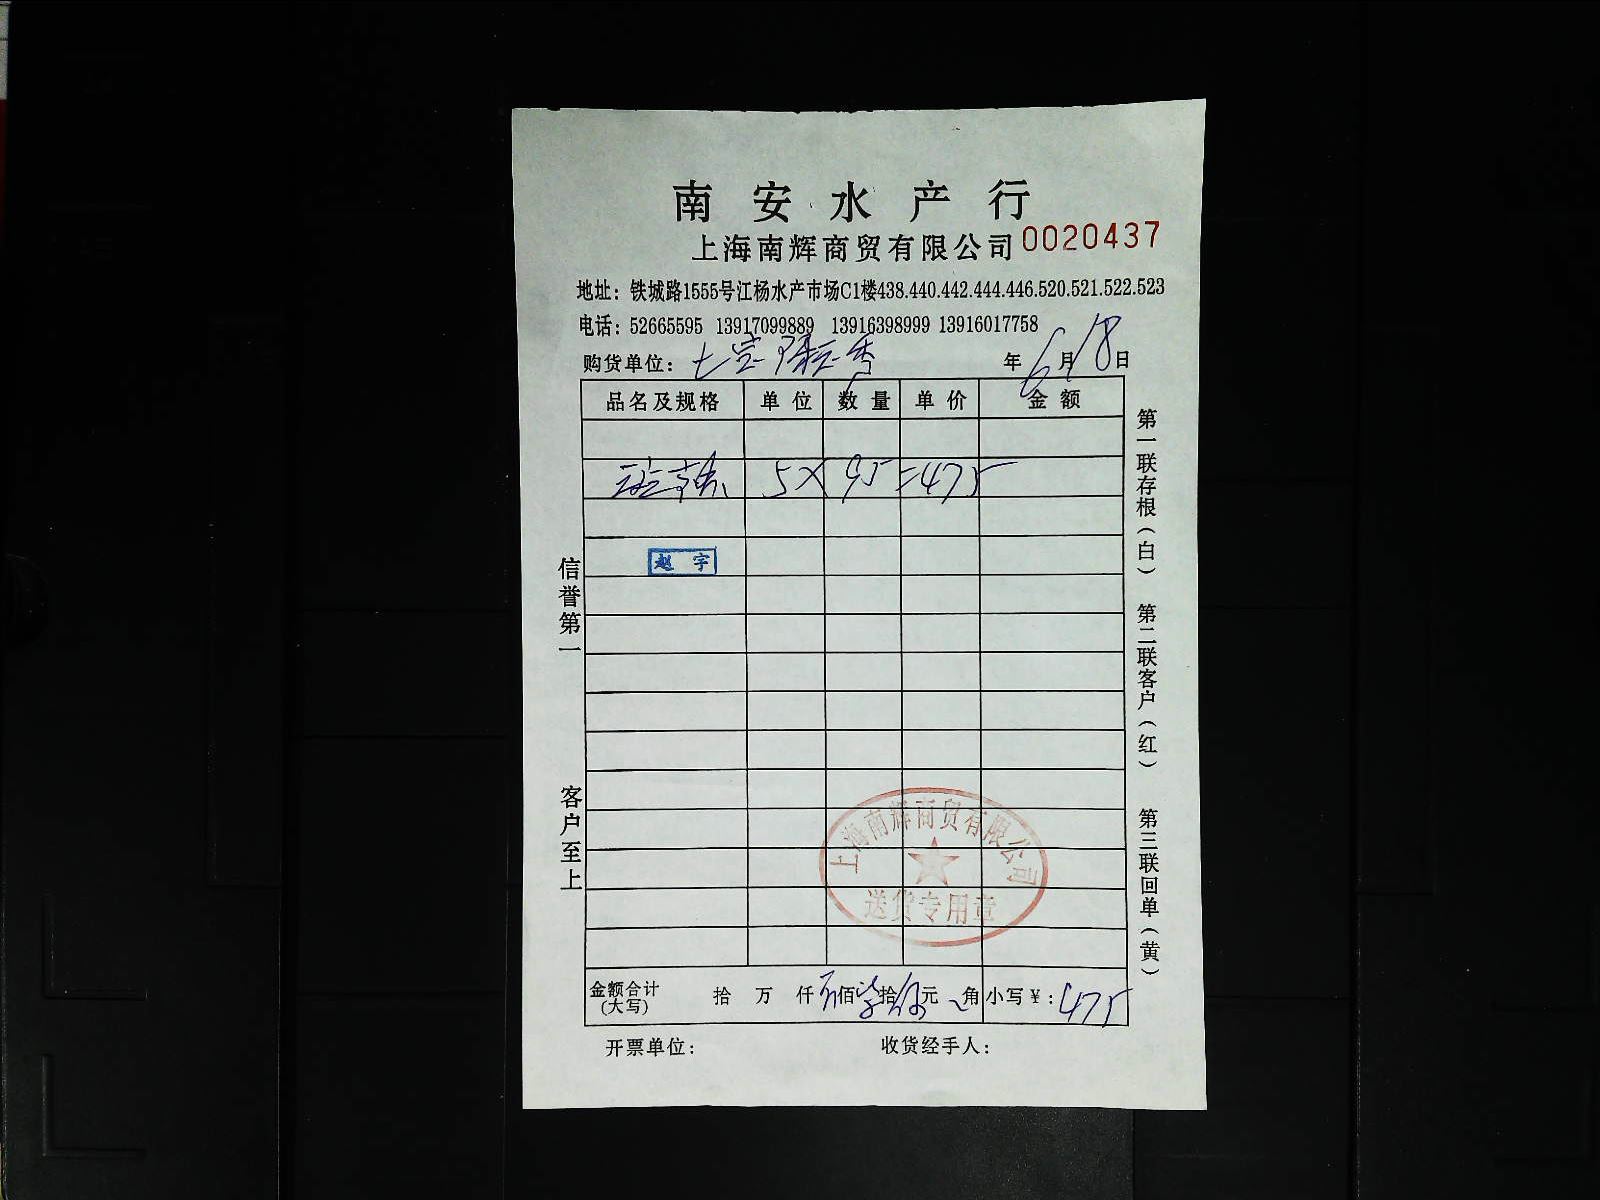 南安水产行
上海南辉商贸有限公司 0020437
地址：铁城路1555号江杨水产市场C1楼438.440.442.444.446.520.521.522.523
电话：52665595 13917099889 13916398999 13916017758
购货单位：七宝 年6月18日
品名及规格 单位 数量 单价 金额
5×95=475
赵宇
信誉第一 客户至上
第一联存根（白） 第二联客户（红） 第三联回单（黄）
上海南辉商贸有限公司
送货专用章
金额合计（大写） 拾 万 仟 佰 拾 元 角 小写￥：475
开票单位： 收货经手人：